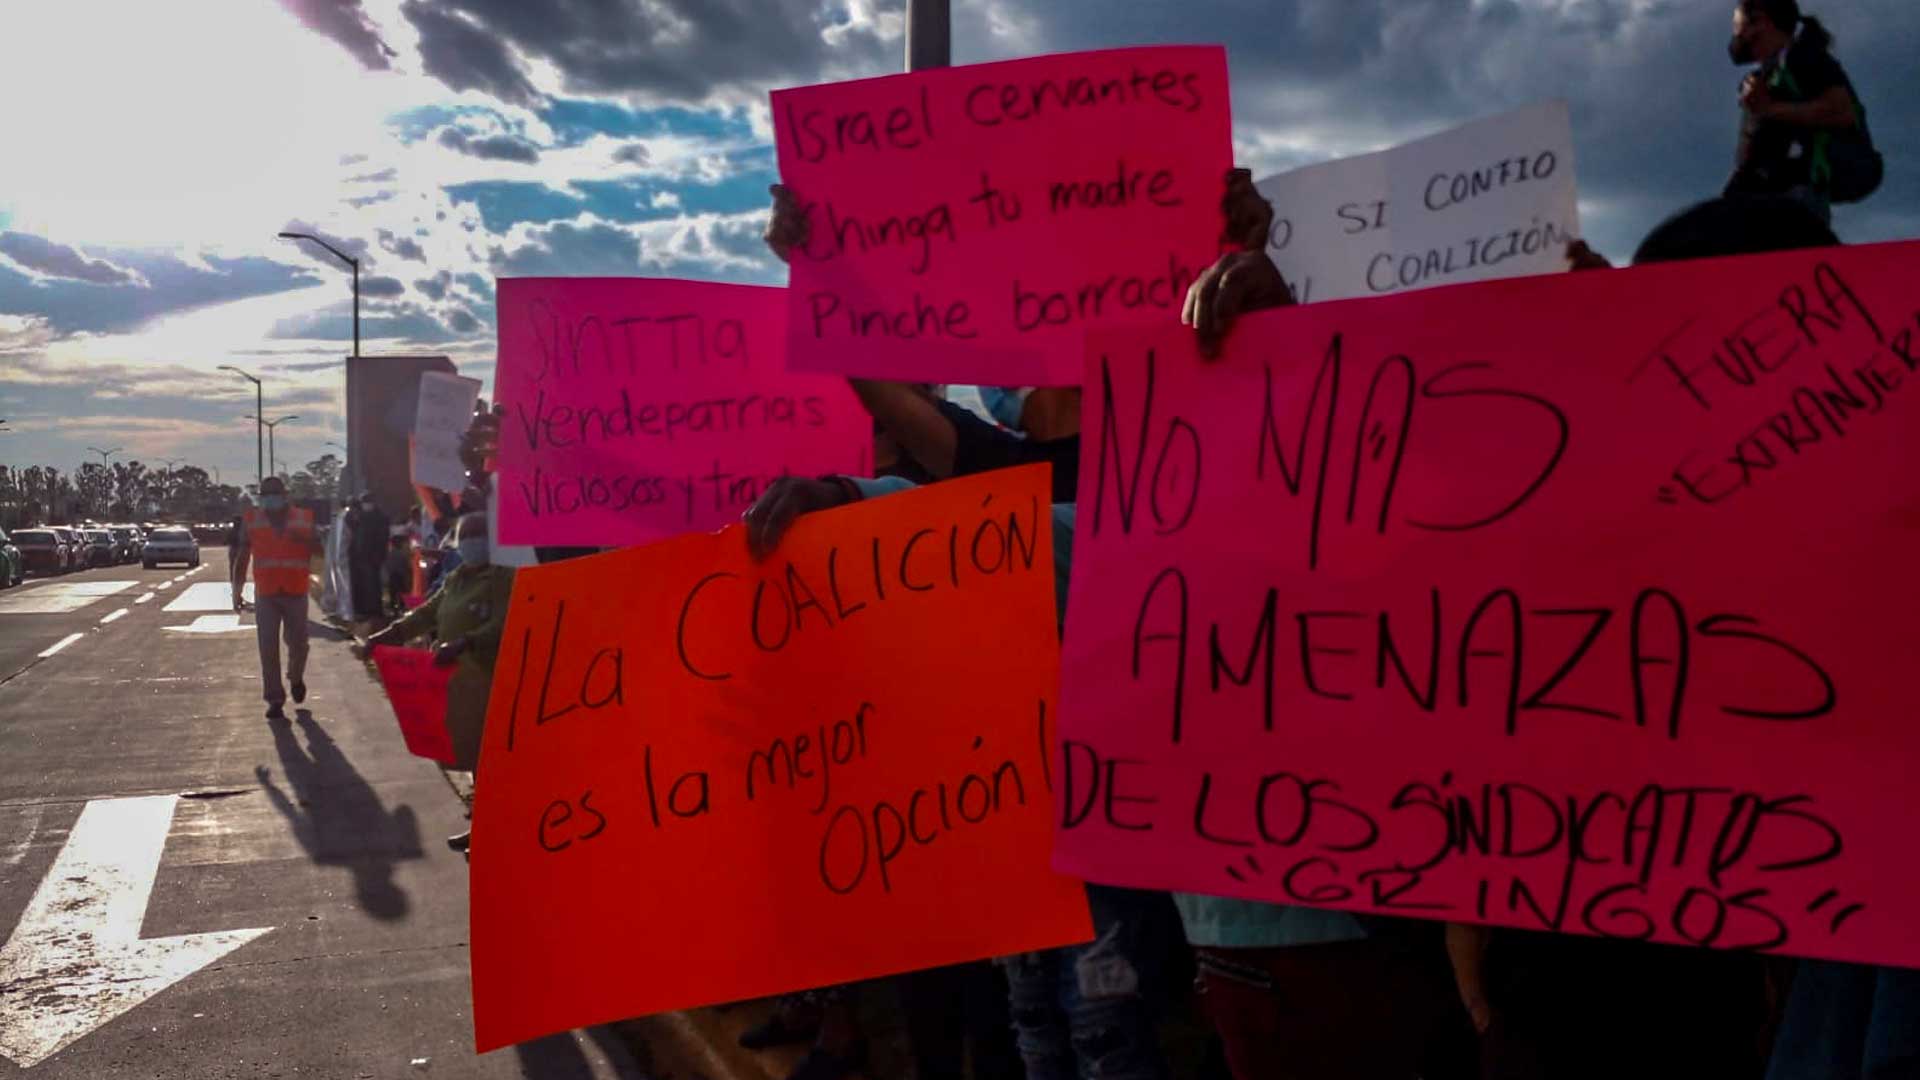 Israel Cervantes
Chinga tu madre
Pinche borrach
SI CONFIO
COALICIÓN
SINTTIA
Vendepatrias
Viciosos y
¡La COALICIÓN
es la mejor
Opción!
NO MAS
AMENAZAS
DE LOS SINDICATOS
"GRINGOS"
FUERA
"EXTRANJER